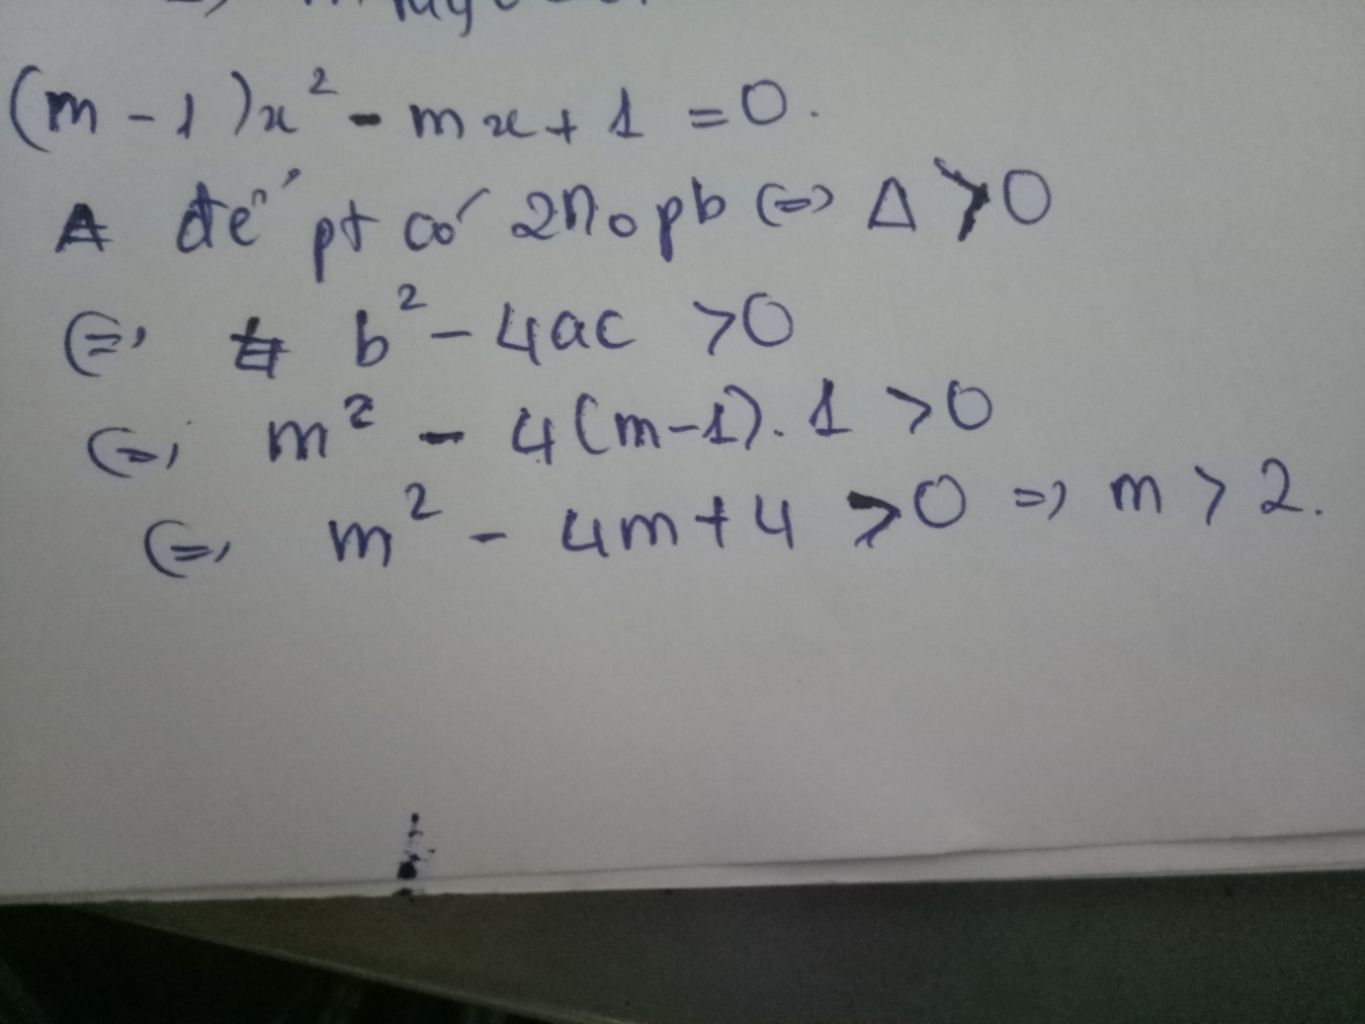 (m - 1)x² - mx + 1 = 0.
để pt có 2no pb (=) Δ > 0
(=) b² - 4ac > 0
(=) m² - 4(m-1).1 > 0
(=) m² - 4m + 4 > 0 => m > 2.